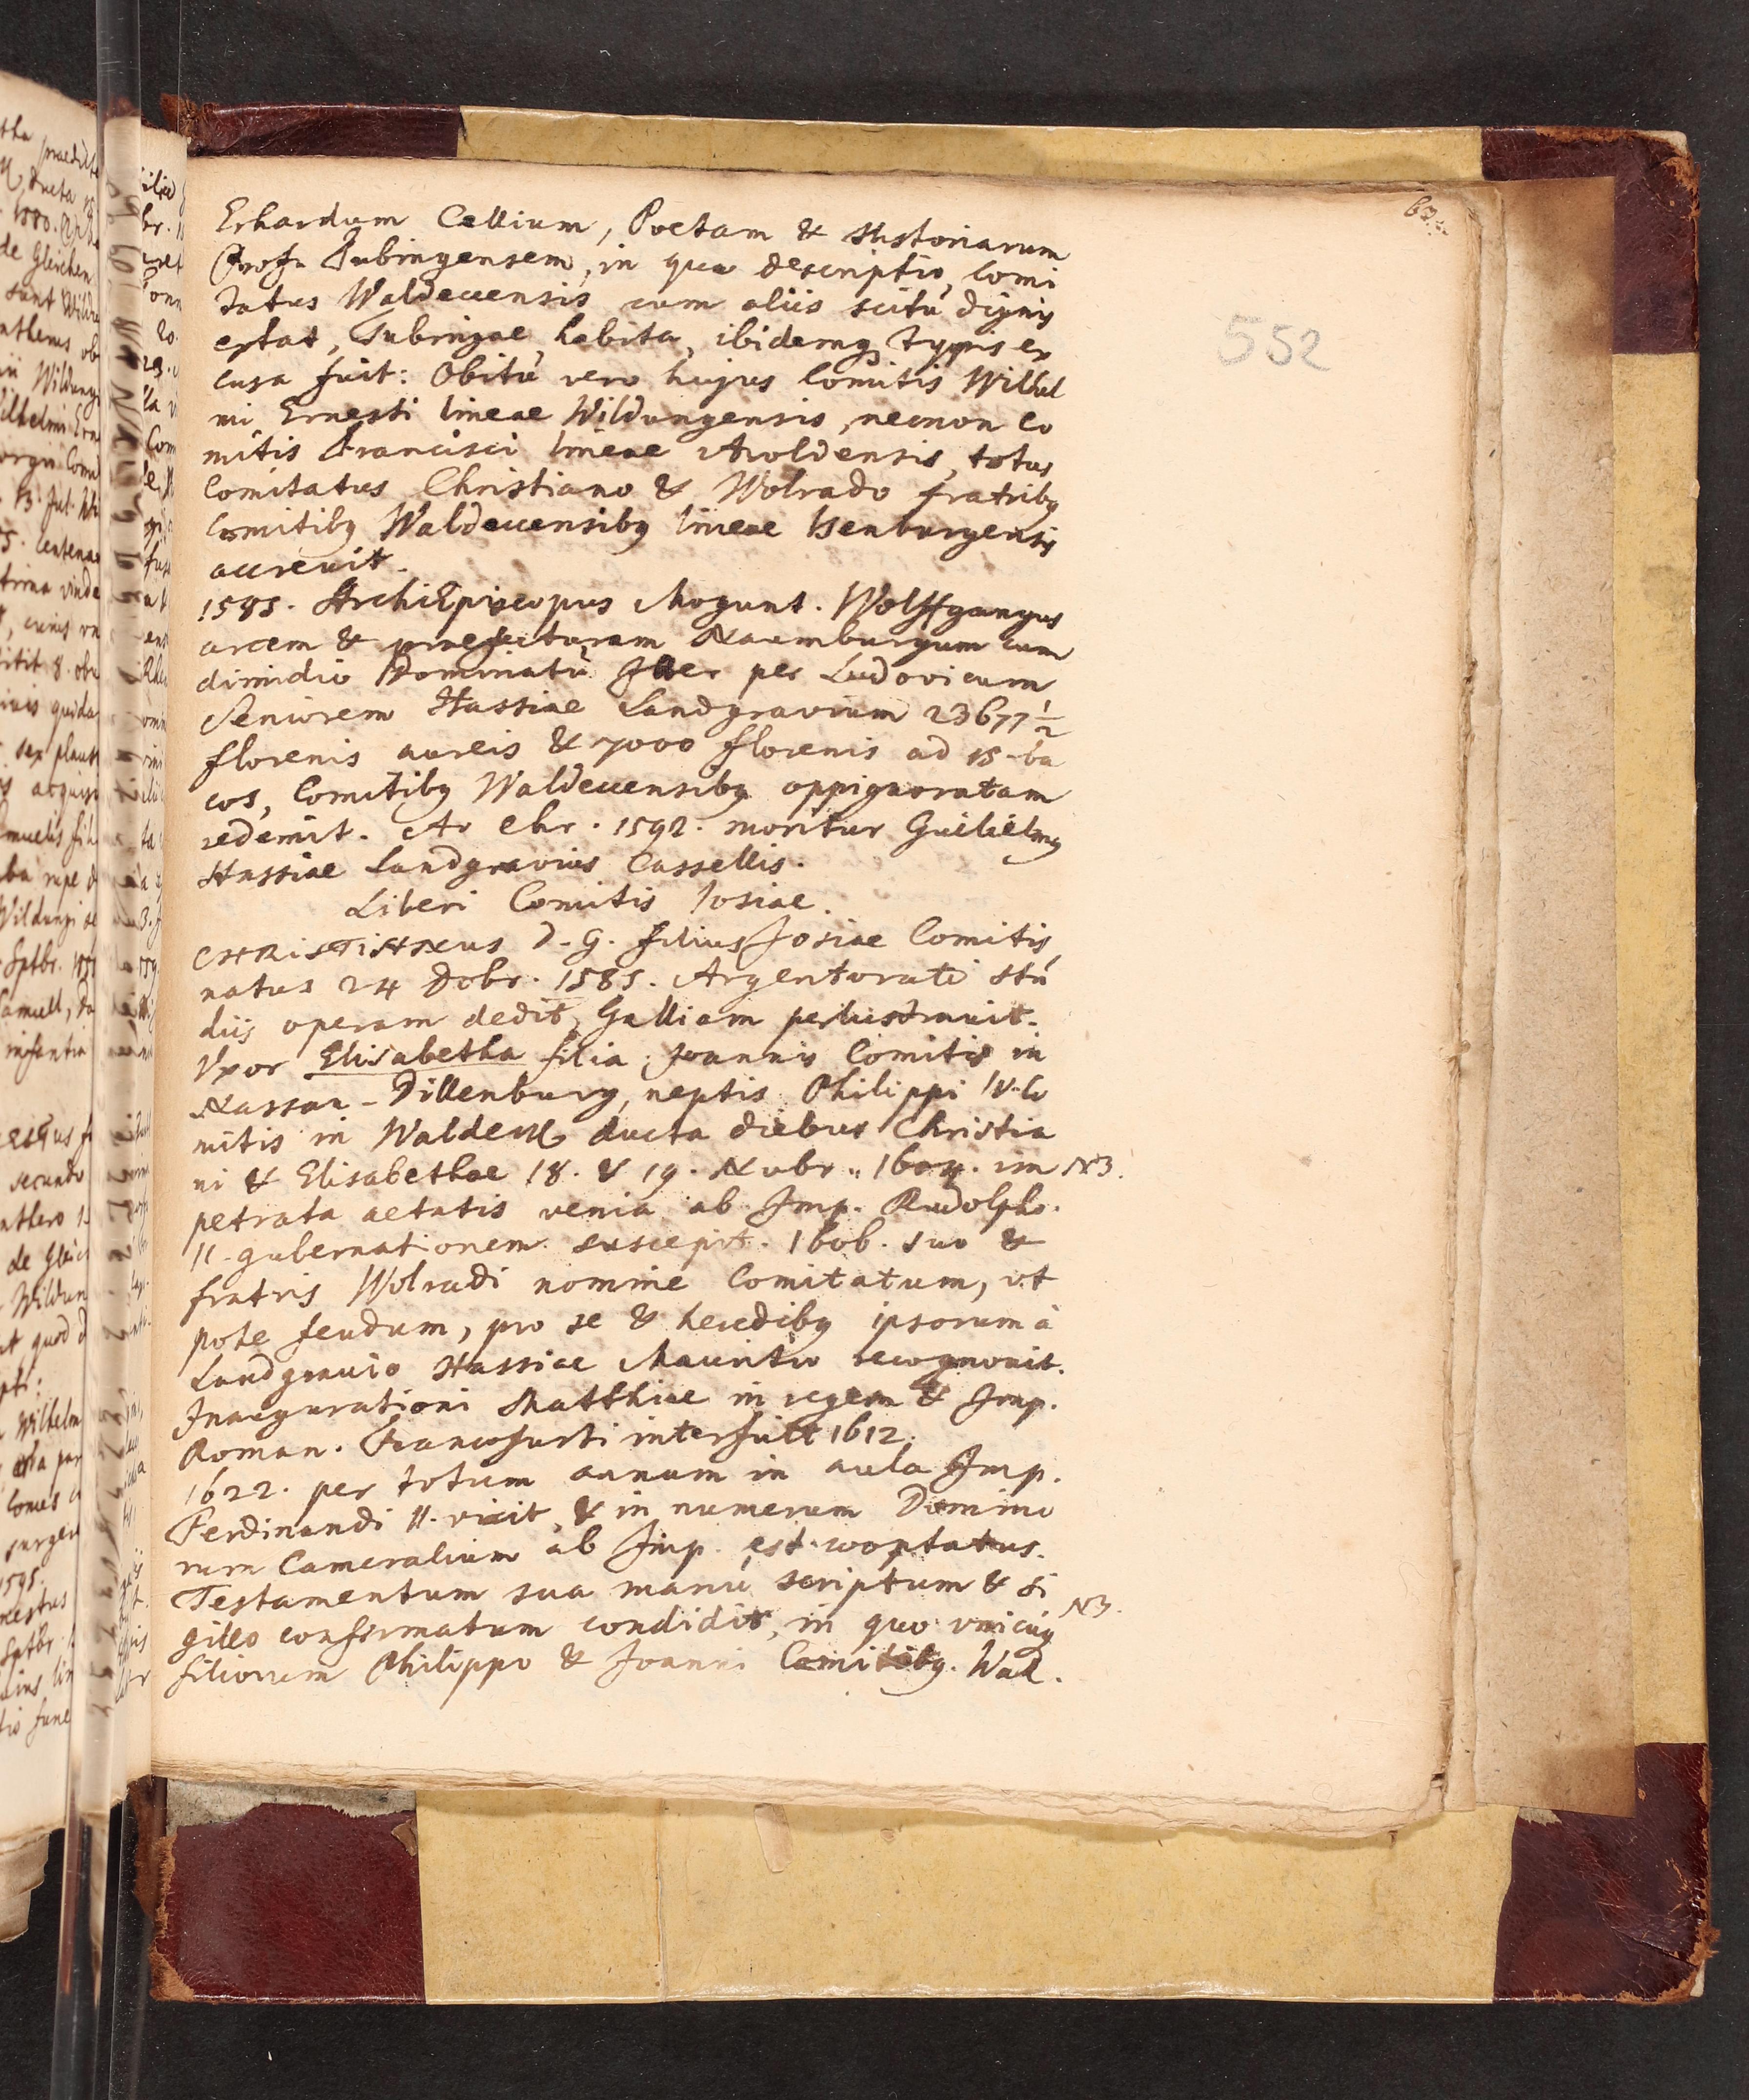 Erhardum Cellium, Poetam & Historiarum
Prof. Tubingensem, in qua descriptio, Comi
tatus Waldeccensis cum aliis scitu dignis
extat, Tubingae habita, ibidemq typis ex
cusa fuit: Obitu vero hujus Comitis Wilhel
mi Ernesti lineae Wildungensis, necnon Co
mitis Francisci lineae Aroldensis, totus
Comitatus Christiano & Wolrado fratribq
Comitibq Waldeccensibq lineae Isenburgensis
accrevit.
1585. ArchiEpiscopus Mogunt. Wolffgangus
arcem & praefecturam Naumburgum cum
dimidio Dominatu Itter per Ludovicum
Seniorem Hassiae Landgravium 23677 1/2
florenis aureis & 7000 florenis ad 15-ba
cos, Comitibq Waldeccensibq oppignoratam
redemit. Ao Chr. 1592. moritur Guilielmq
Hassiae Landgravius Cassellis.
Liberi Comitis Iosiae.
CHRISTIANUS D.G. filius Josiae Comitis
natus 24 Dcbr. 1585. Argentorati stu
diis operam dedit, Galliam perlustravit.
Vxor Elisabetha filia Joannis Comitis in
Nassau-Dillenburg, neptis Philippi IV. Co
mitis in Waldeck ducta diebus Christia
ni & Elisabethae 18. & 19. Nvbr. 1604. im NB.
petrata aetatis venia ab Imp. Rudolpho
II. gubernationem suscepit. 1606. suo &
fratris Wolradi nomine Comitatum, vt
pote feudum, pro se & heredibq ipsorum à
Landgravio Hassiae Mauritio recognovit.
Inaugurationi Matthiae in regem & Imp.
Roman. Francofurti interfuit 1612.
1622. per totum annum in aula Imp.
Ferdinandi II. vixit, & in numerum Domino
rum Cameralium ab Imp. est cooptatus.
Testamentum sua manu scriptum & si
gillo confirmatum condidit, in quo vnicuiq NB.
filiorum Philippo & Joanni Comitibq. Wald.
552